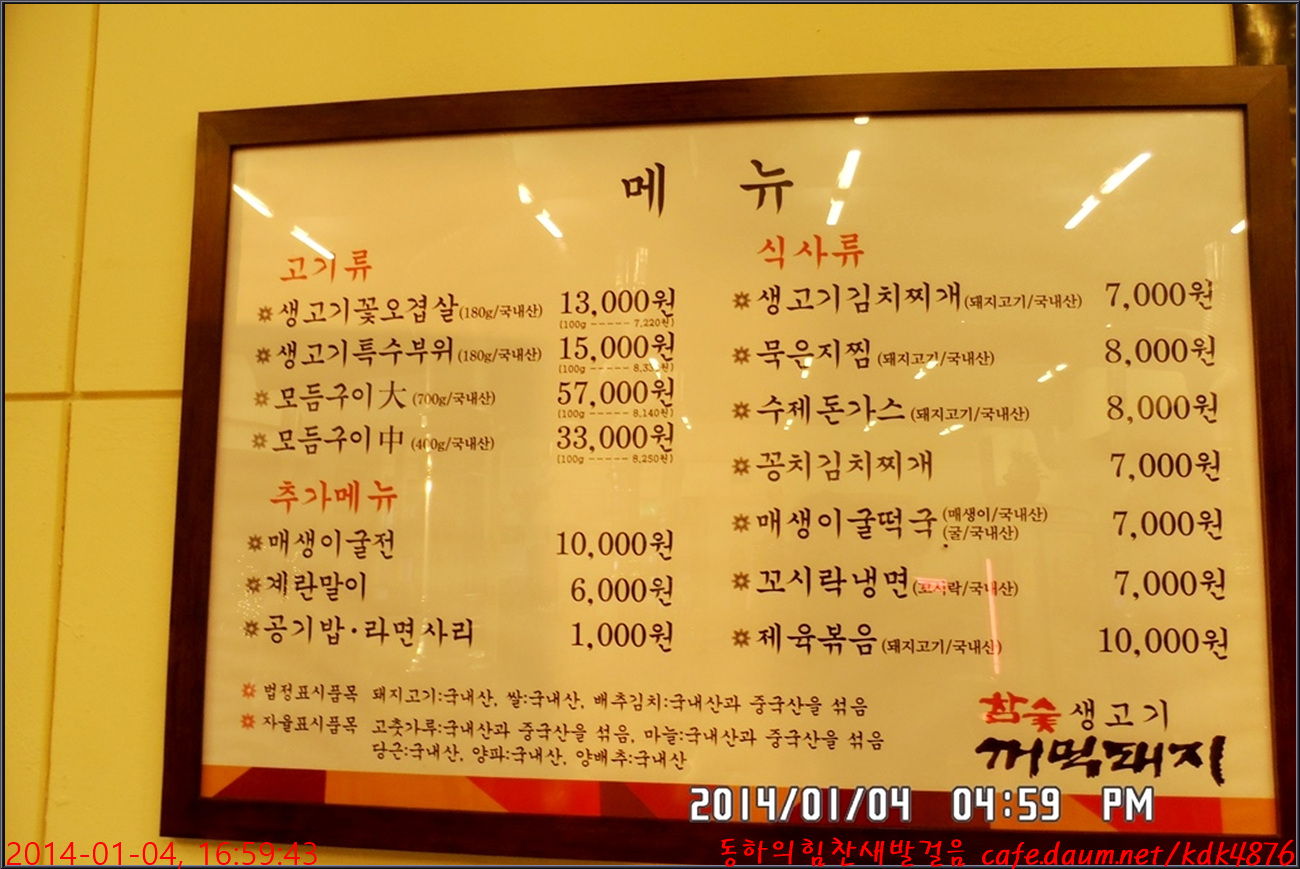 메 뉴
고기류
생고기꽃오겹살(180g/국내산) 13,000원
(100g ----- 7,220원)
생고기특수부위(180g/국내산) 15,000원
(100g ----- 8,33 원)
모듬구이大 (700g/국내산) 57,000원
(100g ----- 8,140원)
모듬구이中 (400g/국내산) 33,000원
(100g ----- 8,250원)
추가메뉴
매생이굴전 10,000원
계란말이 6,000원
공기밥·라면사리 1,000원
식사류
생고기김치찌개(돼지고기/국내산) 7,000원
묵은지찜(돼지고기/국내산) 8,000원
수제돈가스(돼지고기/국내산) 8,000원
꽁치김치찌개 7,000원
매생이굴떡국(매생이/국내산) 7,000원
(굴/국내산)
꼬시락냉면(꼬시락/국내산) 7,000원
제육볶음(돼지고기/국내산) 10,000원
법정표시품목 돼지고기:국내산, 쌀:국내산, 배추김치:국내산과 중국산을 섞음
자율표시품목 고춧가루:국내산과 중국산을 섞음, 마늘:국내산과 중국산을 섞음
당근:국내산, 양파:국내산, 양배추:국내산
참숯생고기
꺼먹돼지
2014/01/04 04:59 PM
2014-01-04, 16:59:43
동하의힘찬새발걸음 cafe.daum.net/kdk4876